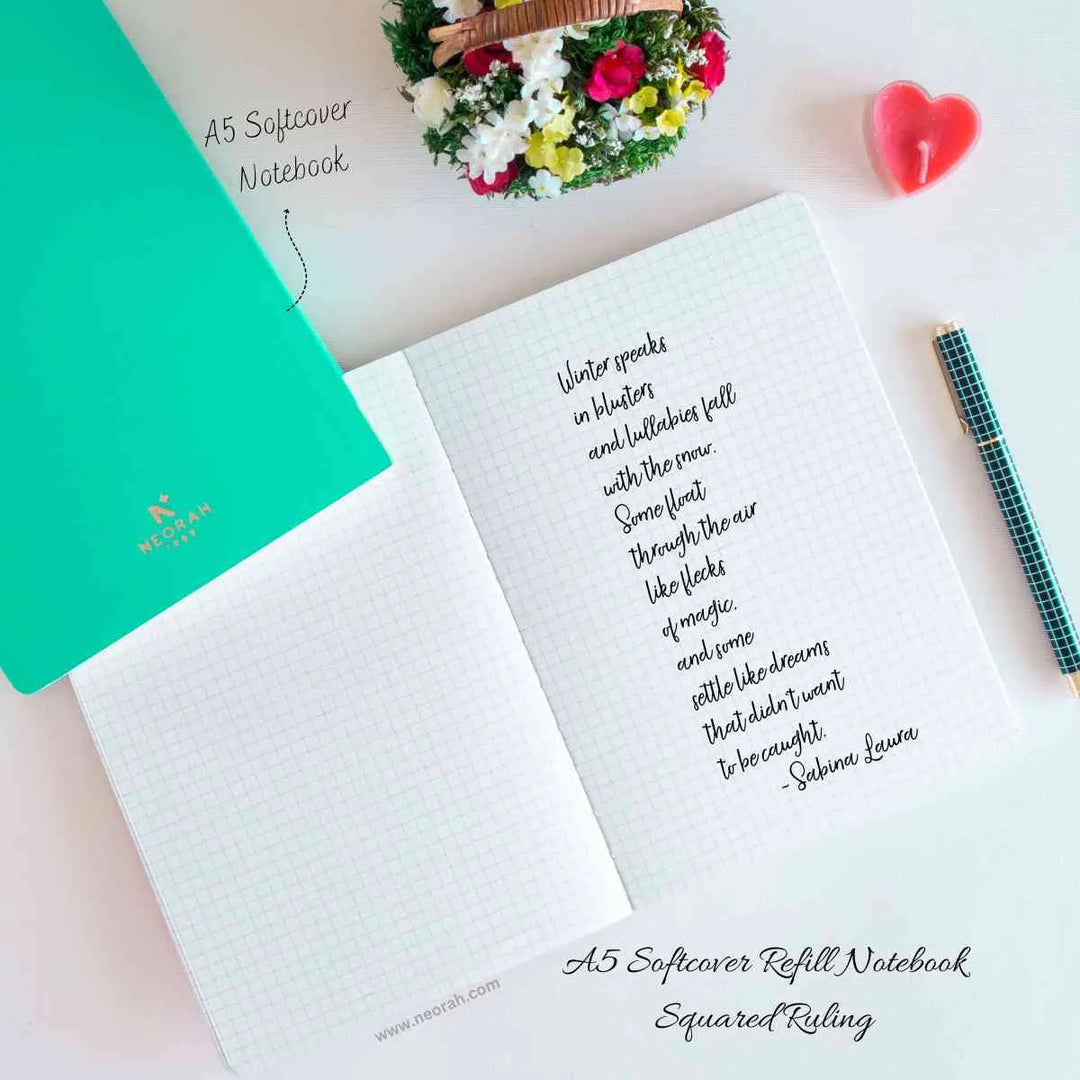 A5 Softcover
Notebook
NEORAH
Winter speaks
in blusters
and lullabies fall
with the snow.
Some float
through the air
like flecks
of magic,
and some
settle like dreams
that didn't want
to be caught.
- Sabina Laura
www.neorah.com
A5 Softcover Refill Notebook
Squared Ruling